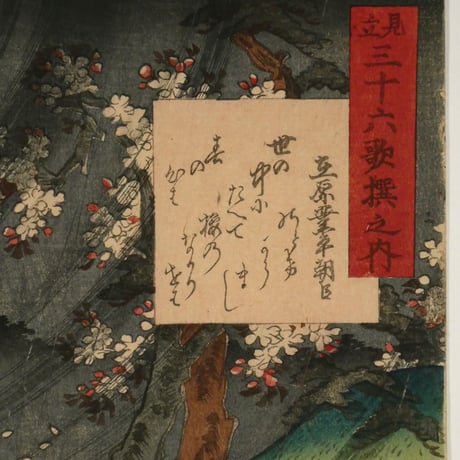 見立三十六歌撰之内
在原業平朝臣
世の
中に
たへて
桜の
なかり
せは
春
の
心は
のとけ
から
まし